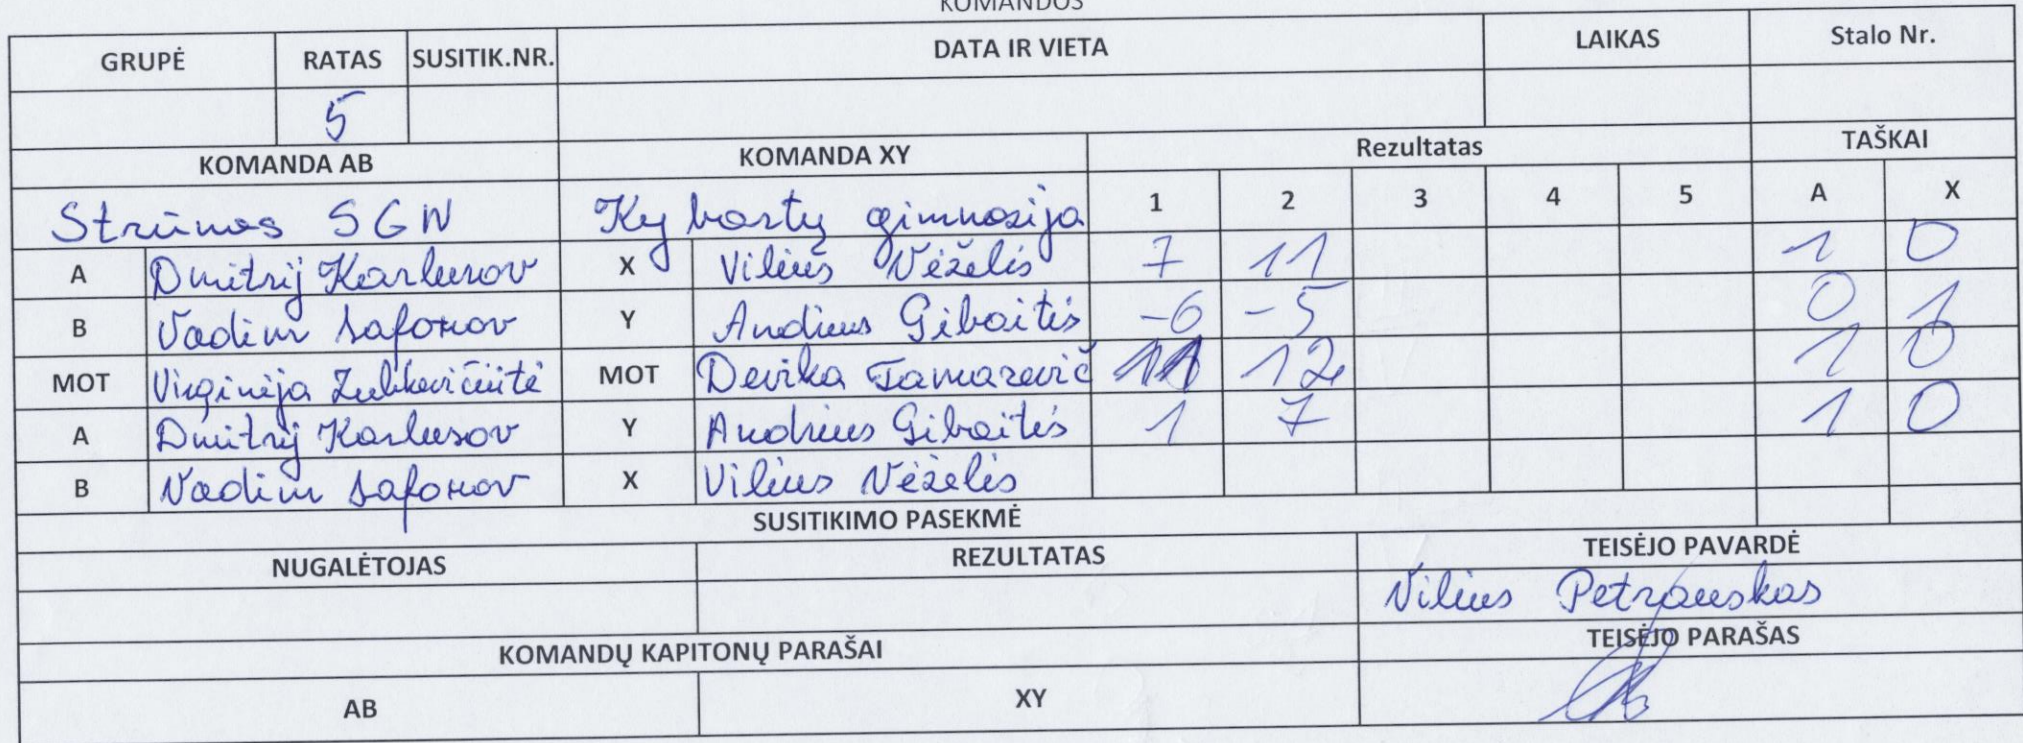 KOMANDOS
GRUPĖ RATAS SUSITIK.NR. DATA IR VIETA LAIKAS Stalo Nr.
5
KOMANDA AB KOMANDA XY Rezultatas TAŠKAI
Strūnas SGN Kybartų gimnazija 1 2 3 4 5 A X
A Dmitrij X Vilius Vėželis 7 11 1 0
B Vadim Safonov Y Andrius Gibaitis -6 -5 0 1
MOT Virginija Zubkavičiūtė MOT Devika Tamarevič 12 1 0
A Dmitrij Y Andrius Gibaitis 1 7 1 0
B Vadim Safonov X Vilius Vėželis
SUSITIKIMO PASEKMĖ
NUGALĖTOJAS REZULTATAS TEISĖJO PAVARDĖ
Vilius Petrauskas
KOMANDŲ KAPITONŲ PARAŠAI TEISĖJO PARAŠAS
AB XY